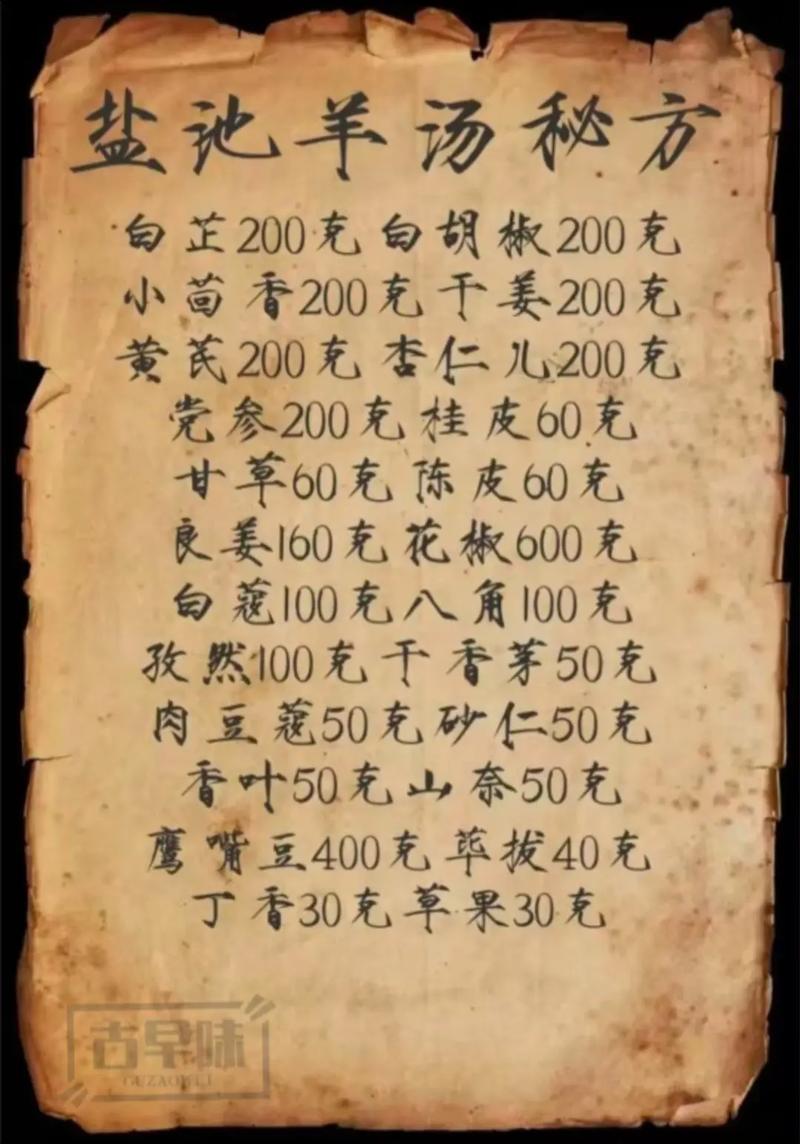 盐池羊汤秘方
白芷200克 白胡椒200克
小茴香200克 干姜200克
黄芪200克 杏仁儿200克
党参200克 桂皮60克
甘草60克 陈皮60克
良姜160克 花椒600克
白蔻100克 八角100克
孜然100克 干香茅50克
肉豆蔻50克 砂仁50克
香叶50克 山奈50克
鹰嘴豆400克 荜拔40克
丁香30克 草果30克
古早味